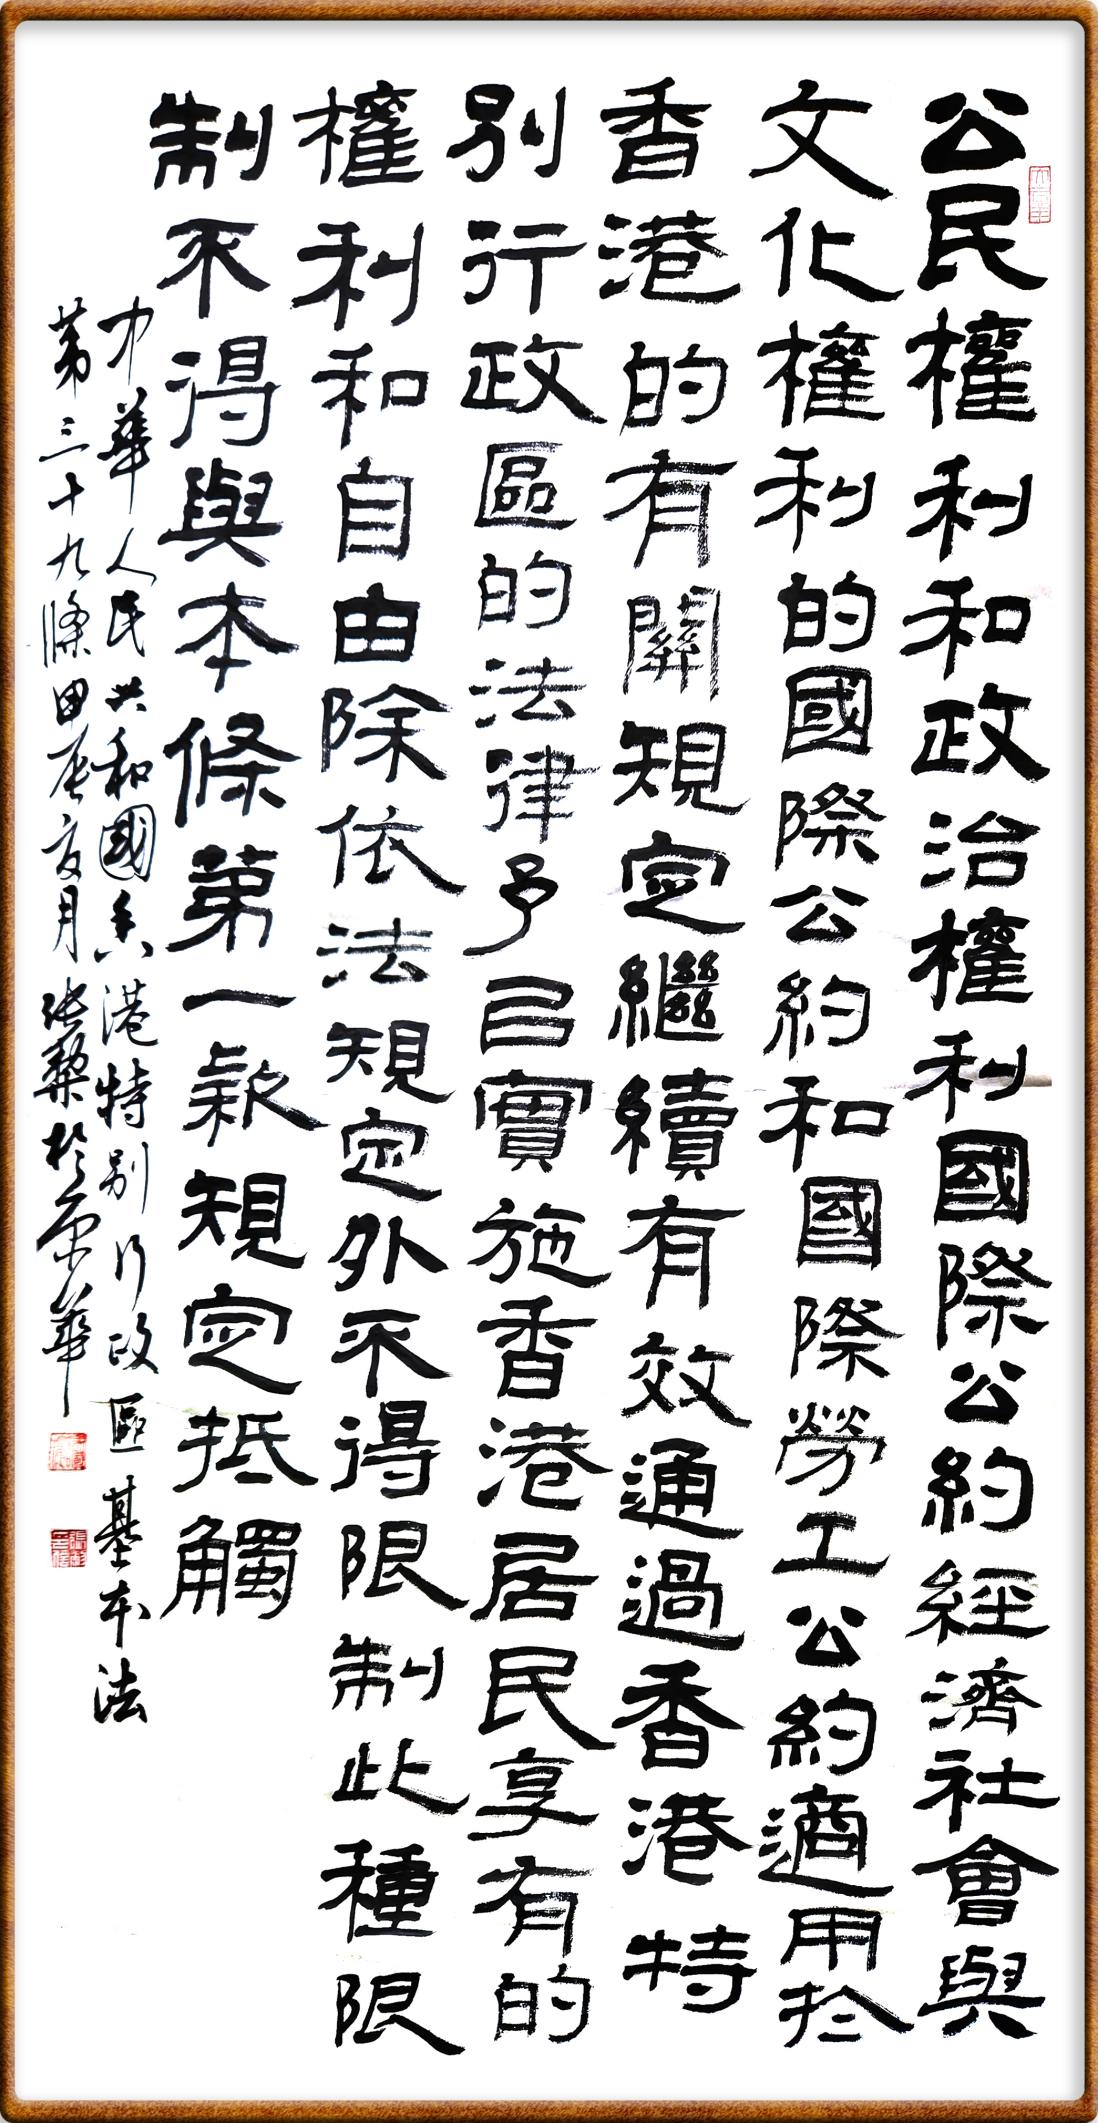 公民權利和政治權利國際公約經濟社會與
文化權利的國際公約和國際勞工公約適用於
香港的有關規定繼續有效通過香港特
別行政區的法律予以實施香港居民享有的
權利和自由除依法規定外不得限制此種限
制不得與本條第一款規定抵觸
中華人民共和國香港特別行政區基本法
第三十九條甲辰夏月張黎於京華